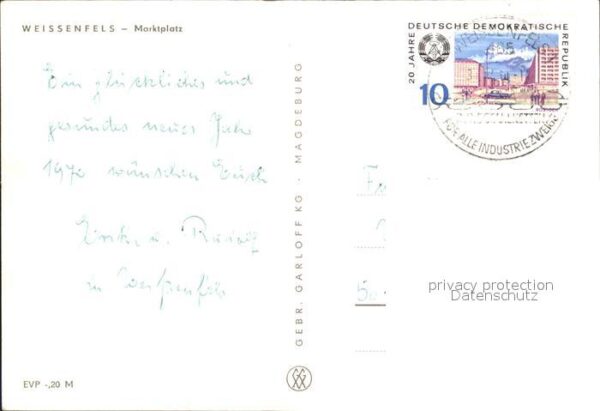 WEISSENFELS – Marktplatz
Ein glückliches und
gesundes neues Jahr
1970 wünschen Euch
u. Rudolf
in Weißenfels
EVP -,20 M
GEBR. GARLOFF KG · MAGDEBURG
20 JAHRE DEUTSCHE DEMOKRATISCHE REPUBLIK
10
WEISSENFELS
FÜR ALLE INDUSTRIEZWEIGE
privacy protection
Datenschutz